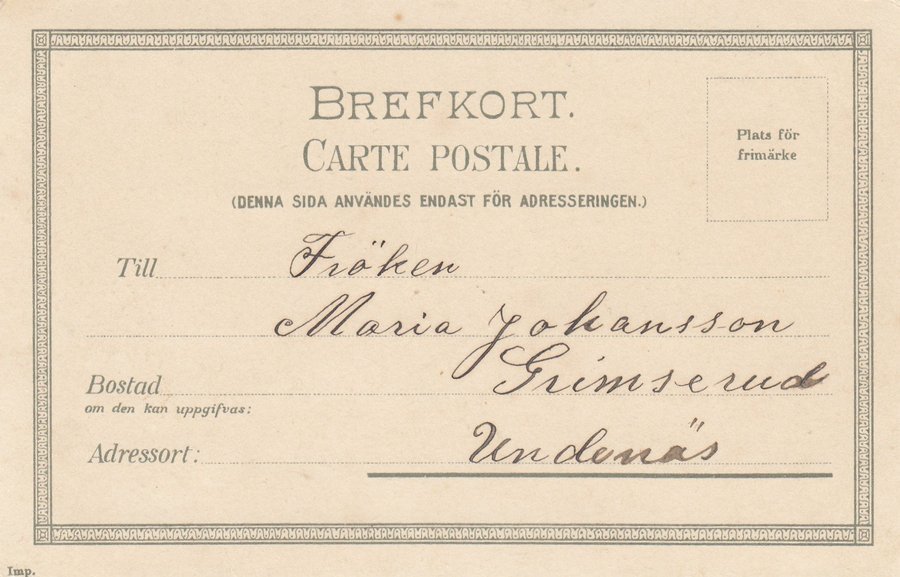 BREFKORT.
CARTE POSTALE.
Plats för
frimärke
(DENNA SIDA ANVÄNDES ENDAST FÖR ADRESSERINGEN.)
Till Fröken
Maria Johansson
Bostad Grimserud
om den kan uppgifvas:
Adressort: Undenäs
Imp.